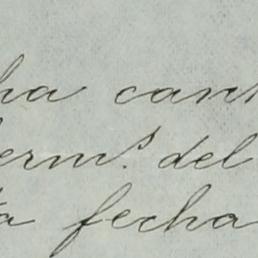 ha can
erm.s del
ta fecha